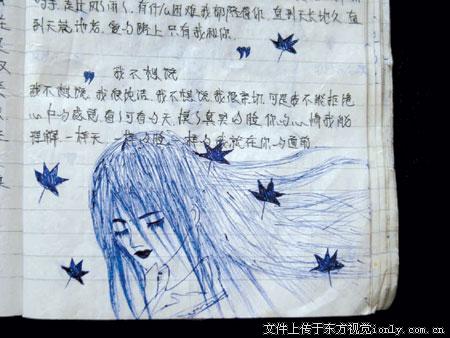 有什么困难我都陪着你，直到天长地久，直
到天荒地老，爱的路上只有我和你.
我不想说
我不想说，我很纯洁，我不想说我很亲切，可是我不能拒绝
心中的感觉，看看可爱的天，摸摸真实的脸，你的心情我能
理解 一样天 一样的脸 一样的我就在你的面前
文件上传于东方视觉ionly.com.cn